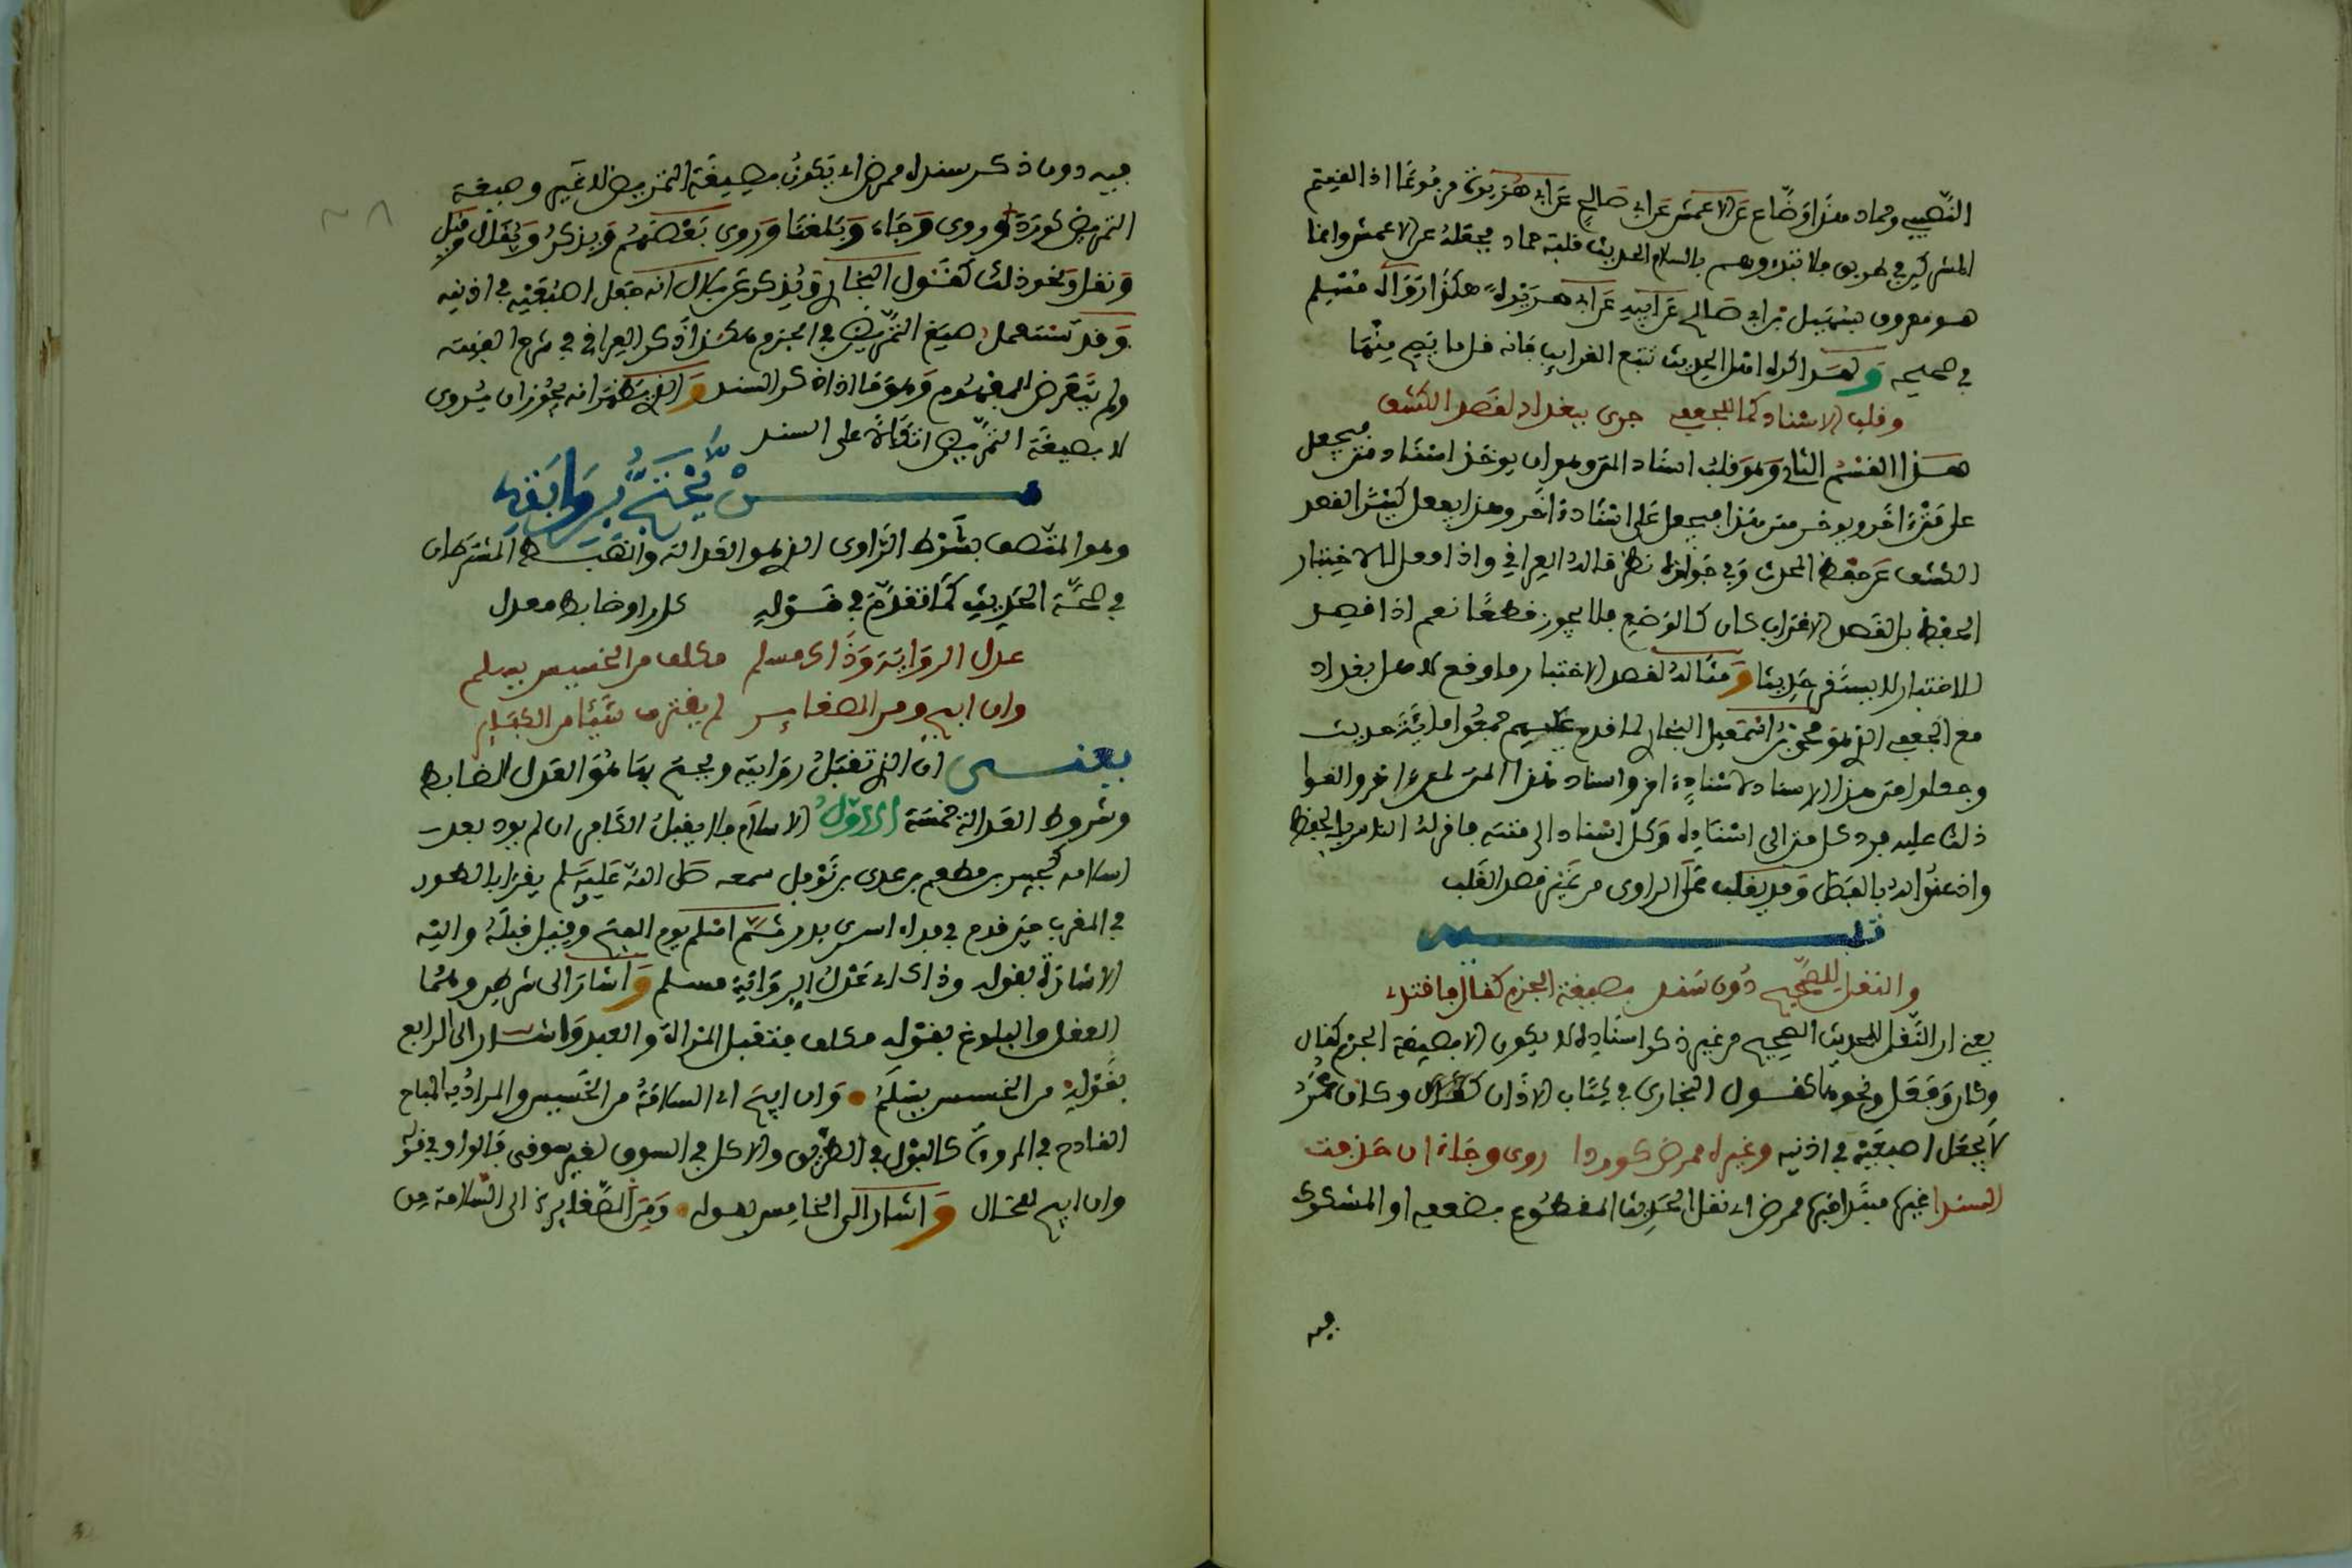 النصيبي وحماد هذا وضاع عن الاعمش عن ابي صالح عن ابي هريرة مرفوعا اذا لقيتم
المشركين في طريق فلا تبدءوهم بالسلام الحديث قلبه حماد فجعله عن الاعمش وانما
هو معروف بسهيل بن ابي صالح عن ابيه عن ابي هريرة هكذا رواه مسلم
في صحيحه ولهذا كره اهل الحديث تتبع الغرايب فانه قل ما يصح منها
وقلب الاسناد كما للجعفي جرى ببغداد لقصد الكشف
هذا القسم الثاني وهو قلب اسناد المتن وهو ان يوخذ اسناد متن فيجعل
على متن اخر ويوخذ متن هذا فيجعل على اسناد اخر وهذا يفعل كثيرا لقصد
الكشف عن حفظ المحدث وفي جوازه نظر قاله العراقي واذا فعل للاختبار
الحفظ بل لقصد الاغراب كان كالوضع فلا يجوز قطعا نعم اذا قصد
للاختبار لا يستقر حديثا ومثاله لقصد الاختبار ما وقع لاهل بغداد
مع الجعفي الذي هو محمد بن اسمعيل البخاري لما قدم عليهم جمعوا ماية حديث
وجعلوا متن هذا الاسناد لاسناد اخر واسناد هذا المتن لمتن اخر والقوا
ذلك عليه فرد كل متن الى اسناده وكل اسناد الى متنه فاقر له الناس بالحفظ
واذعنوا له بالفضل وقد يقلب على الراوي من غير قصد القلب
تنبيه
والنقل للصحيح دون سند بصيغة الجزم كقال فاقتد
يعني ان النقل للحديث الصحيح من غير ذكر اسناده لا يكون الا بصيغة الجزم كقال
وكان وفعل ونحوها كقول البخاري في كتاب الاذان وكان عمر
لا يجعل اصبعيه في اذنيه وغيره ممرض كوردا روى وجاء ان حذفت
السند غيره مبتدا خبره ممرض اي نقل الحديث المقطوع بضعفه او المشكوك
فيه
فيه دون ذكر سنده ممرض اي يكون بصيغة التمريض لا غير وصيغة
التمريض كورد وروي وجاء وبلغنا وروى بعضهم ويذكر ويقال وقيل
ونقل ونحو ذلك كقول البخاري ويذكر عن بلال انه جعل اصبعيه في اذنيه
وقد تستعمل صيغ التمريض في الجزم هكذا ذكر العراقي في شرح الفيته
ولم يتعرض لمفهوم وهو ما اذا ذكر السند والذي يظهر انه يجوز ان يروى
لا بصيغة التمريض اتكالا على السند
من يحتج بروايته
وهو المتصف بشرط الراوي الذي هو العدالة والضبط المشترطان
في صحة الحديث كما تقدم في قوله كل راو ضابط معدل
عدل الرواية وذاك مسلم مكلف من الخسيس يسلم
وان ابيح ومن الصغاير لم يقترف شيئا من الكباير
يعني ان الذي تقبل روايته ويحتج بها هو العدل الضابط
وشروط العدالة خمسة الاول الاسلام فلا يقبل الكافر ان لم يود بعد
اسلامه كجبير بن مطعم بن عدي بن نوفل سمعه صلى الله عليه وسلم يقرا بالطور
في المغرب حين قدم في فداء اسرى بدر ثم اسلم يوم الفتح وقيل قبله واليه
الاشارة بقوله وذاك اي عدل الرواية مسلم واشار الى شرطين وهما
العقل والبلوغ بقوله مكلف واشار الى الرابع
بقوله من الخسيس يسلم وان ابيح اي السلامة من الخسيس والمراد به المباح
القادح في المروءة كالبول في الطريق والاكل في السوق لغير سوقي
وان ابيح واشار الى الخامس بقوله ومن الصغاير الى السلامة من